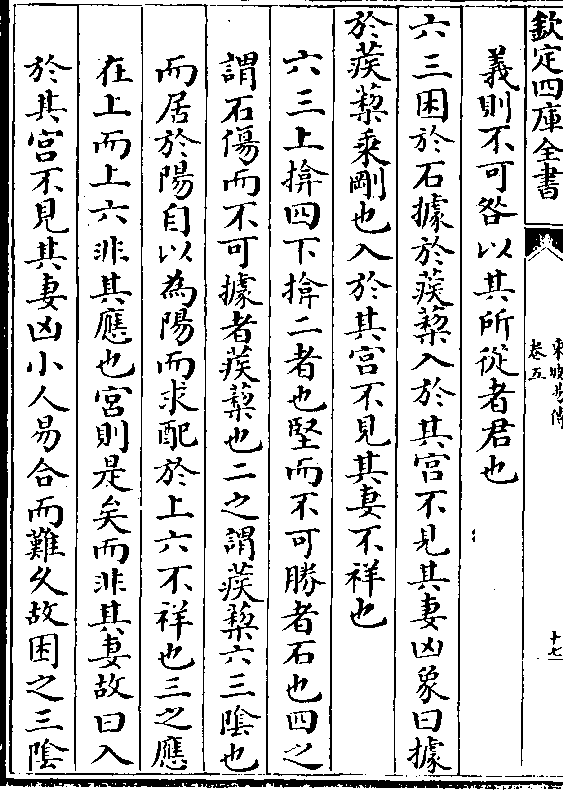 欽定四庫全書
東坡易傳
卷五
十七
義則不可咎以其所從者君也
六三困於石據於蒺蔾入於其宮不見其妻凶象曰據
於蒺蔾乘剛也入於其宮不見其妻不祥也
六三上揜四下揜二者也堅而不可勝者石也四之
謂石傷而不可據者蒺蔾也二之謂蒺蔾六三陰也
而居於陽自以為陽而求配於上六不祥也三之應
在上而上六非其應也宮則是矣而非其妻故曰入
於其宮不見其妻凶小人易合而難久故困之三陰